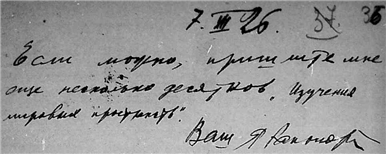 7. III 26. 37. 36
Если можно, пришлите мне
еще несколько десятков „Изучения
мировых пространств“.
Ваш Я